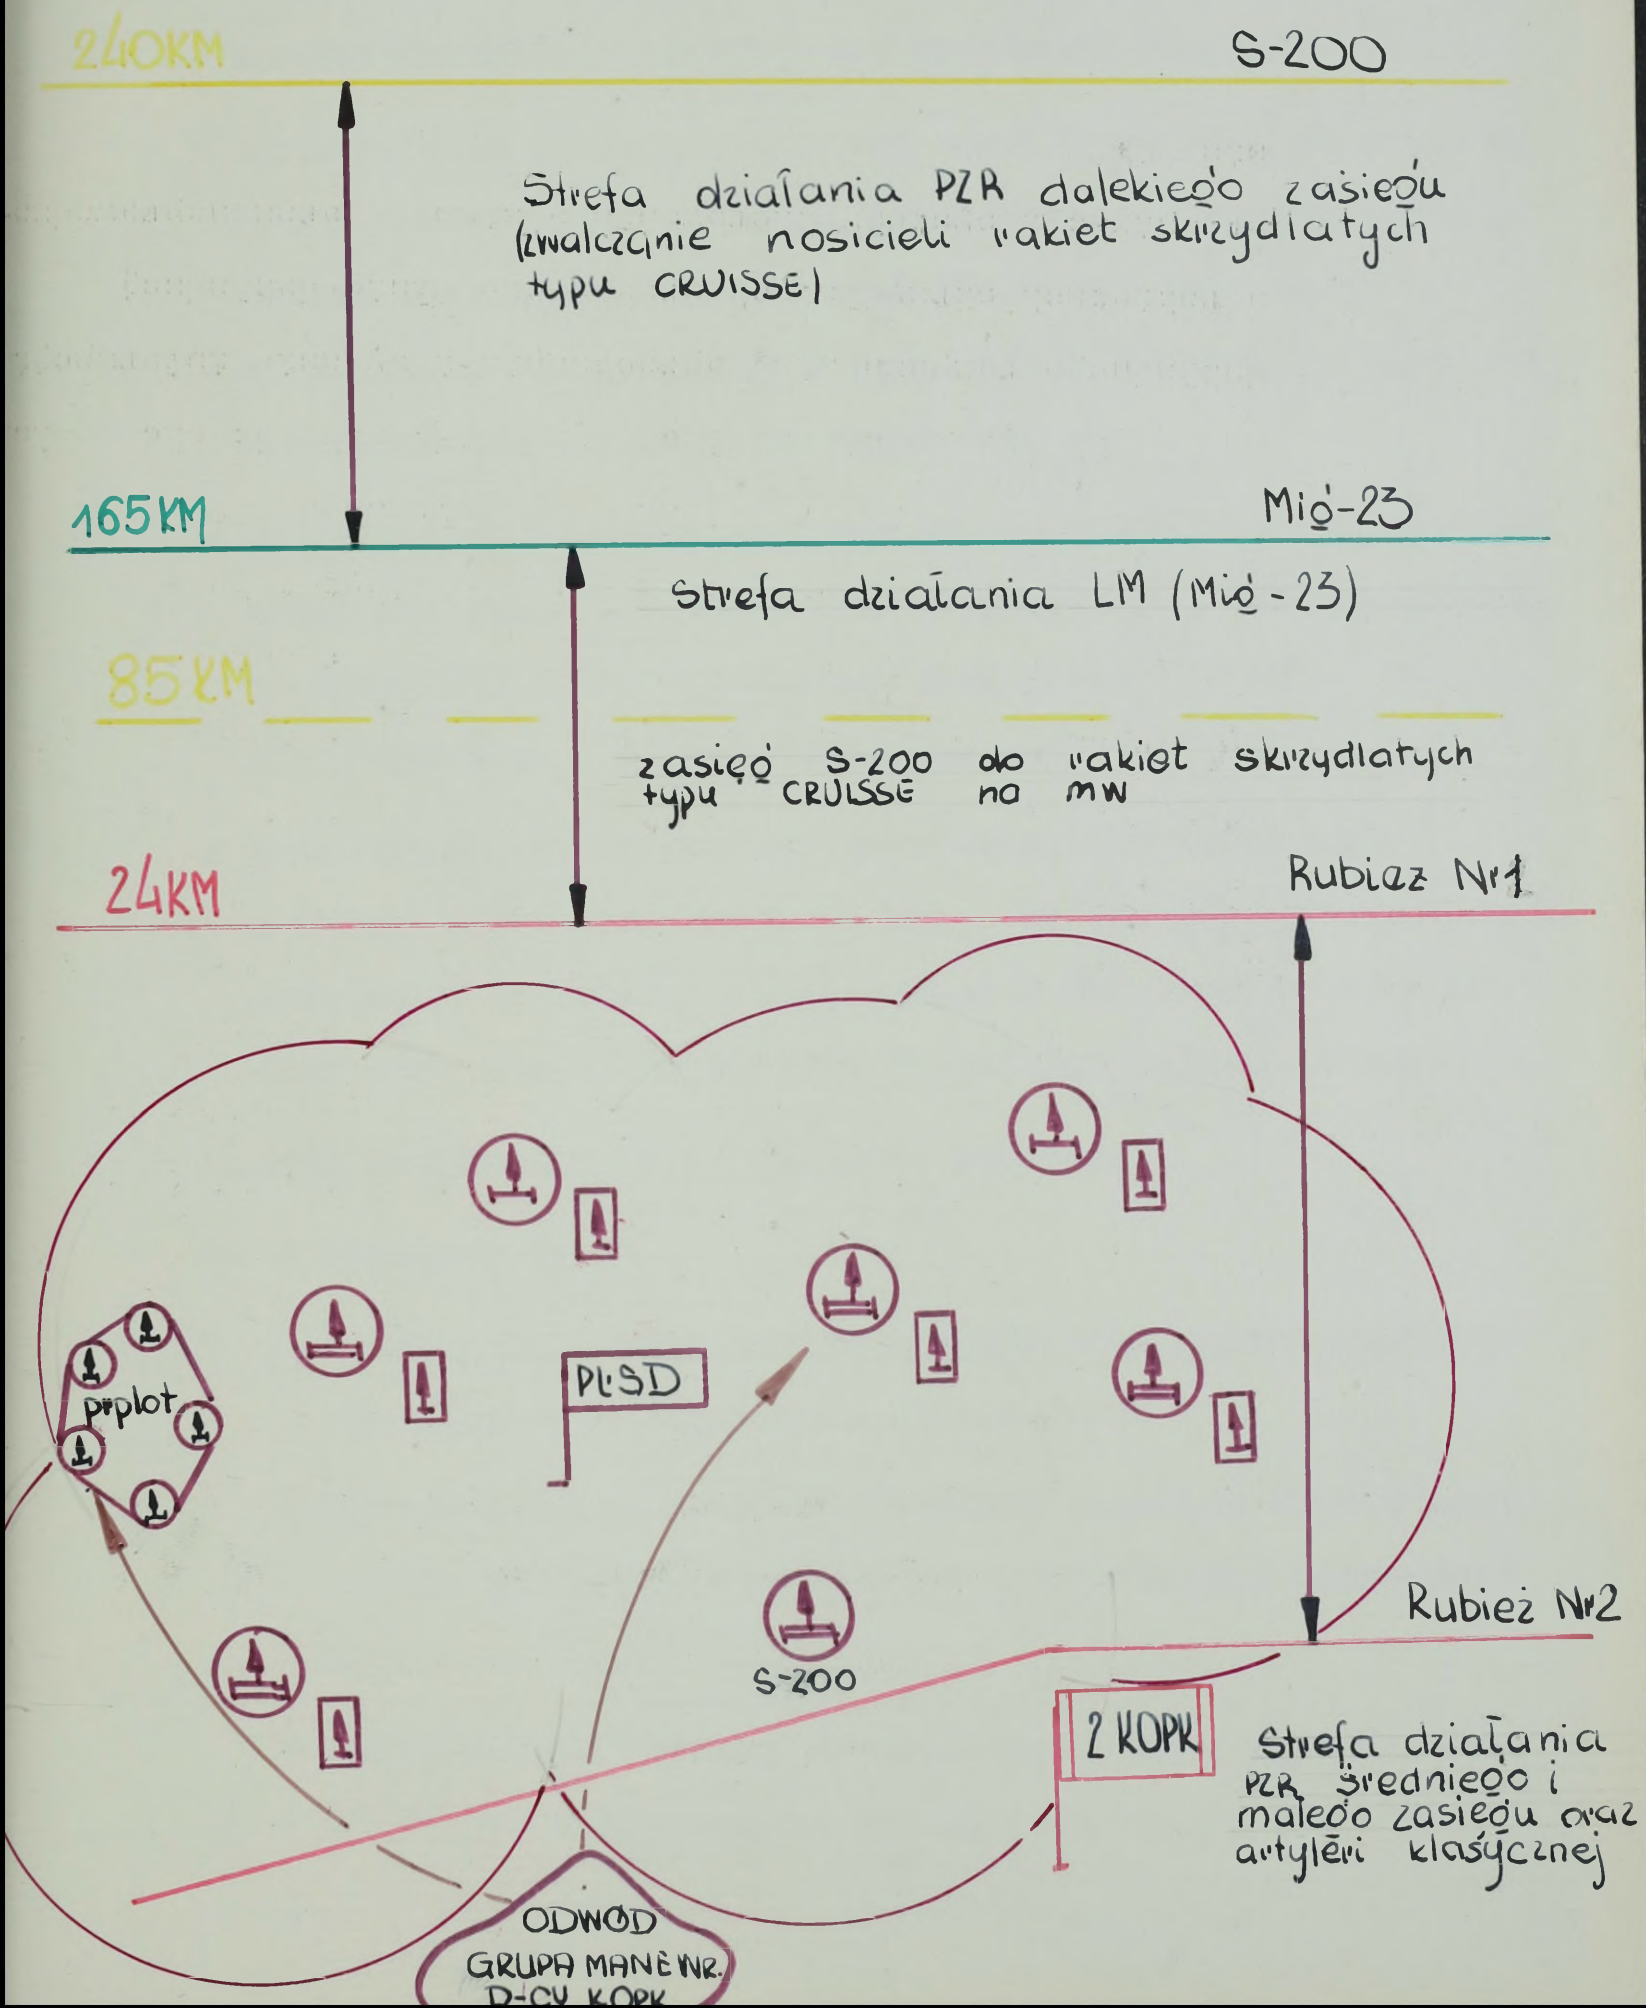 240KM
S-200
Strefa działania PZR dalekiego zasięgu
(zwalczanie nosicieli rakiet skrzydlatych
typu CRUISSE)
165KM
Mig-23
Strefa działania LM (Mig-23)
85KM
zasięg S-200 do rakiet skrzydlatych
typu CRUISSE na mw
24KM
Rubież Nr1
prplot
PŁSD
S-200
Rubież Nr2
2 KOPK
Strefa działania
PZR średniego i
małego zasięgu oraz
artyleri klasycznej
ODWÓD
GRUPA MANEWR.
D-CY KOPK